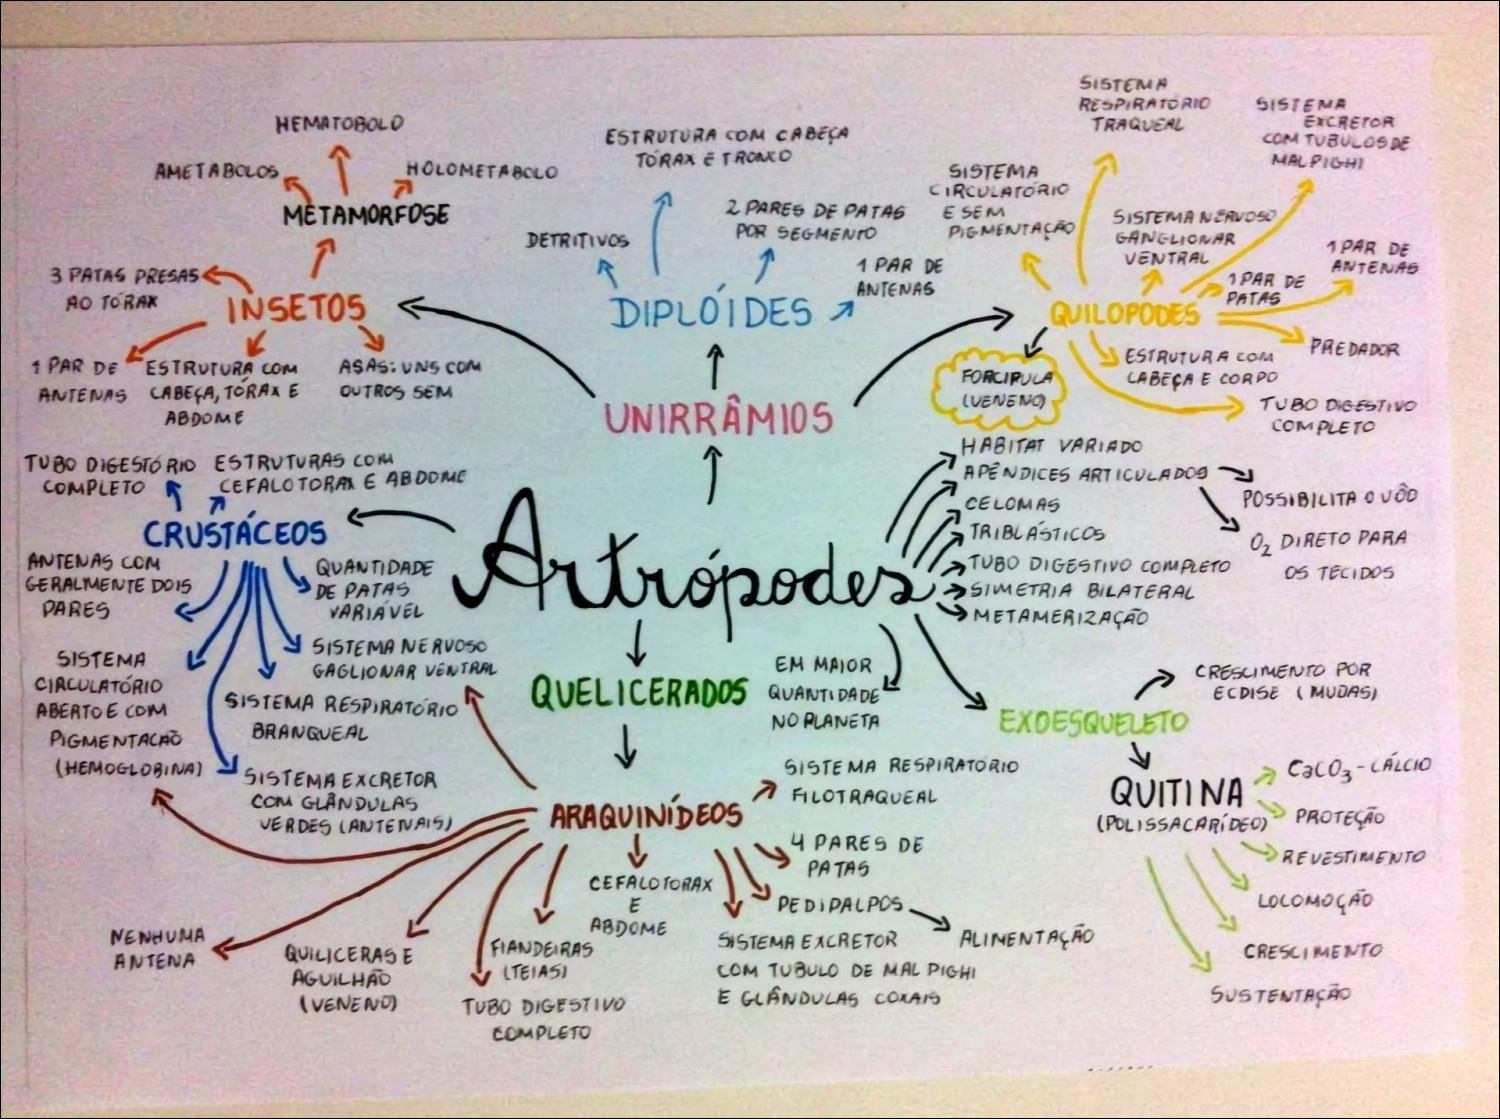 HEMATOBOLO
AMETABOLOS
HOLOMETABOLO
METAMORFOSE
3 PATAS PRESAS
AO TÓRAX
INSETOS
1 PAR DE
ANTENAS
ESTRUTURA COM
CABEÇA, TÓRAX E
ABDOME
ASAS: UNS COM
OUTROS SEM
ESTRUTURA COM CABEÇA
TÓRAX E TRONCO
DETRITIVOS
2 PARES DE PATAS
POR SEGMENTO
1 PAR DE
ANTENAS
DIPLÓIDES
SISTEMA
RESPIRATÓRIO
TRAQUEAL
SISTEMA
EXCRETOR
COM TUBULOS DE
MALPIGHI
SISTEMA
CIRCULATÓRIO
E SEM
PIGMENTAÇÃO
SISTEMA NERVOSO
GANGLIONAR
VENTRAL
1 PAR DE
PATAS
1 PAR DE
ANTENAS
QUILOPODES
PREDADOR
FORCIPULA
(VENENO)
ESTRUTURA COM
CABEÇA E CORPO
TUBO DIGESTIVO
COMPLETO
UNIRRÂMIOS
TUBO DIGESTÓRIO
COMPLETO
ESTRUTURAS COM
CEFALOTORAX E ABDOME
CRUSTÁCEOS
ANTENAS COM
GERALMENTE DOIS
PARES
QUANTIDADE
DE PATAS
VARIÁVEL
SISTEMA NERVOSO
GAGLIONAR VENTRAL
SISTEMA
CIRCULATÓRIO
ABERTO E COM
PIGMENTACÃO
(HEMOGLOBINA)
SISTEMA RESPIRATÓRIO
BRANQUEAL
SISTEMA EXCRETOR
COM GLÂNDULAS
VERDES (ANTENAIS)
Artrópodes
HABITAT VARIADO
APÊNDICES ARTICULADOS
POSSIBILITA O VÔO
O2 DIRETO PARA
OS TECIDOS
CELOMAS
TRIBLÁSTICOS
TUBO DIGESTIVO COMPLETO
SIMETRIA BILATERAL
METAMERIZAÇÃO
EM MAIOR
QUANTIDADE
NO PLANETA
EXOESQUELETO
CRESCIMENTO POR
ECDISE (MUDAS)
QUITINA
(POLISSACARÍDEO)
CaCO3 - CÁLCIO
PROTEÇÃO
REVESTIMENTO
LOCOMOÇÃO
CRESCIMENTO
SUSTENTAÇÃO
QUELICERADOS
ARAQUINÍDEOS
SISTEMA RESPIRATÓRIO
FILOTRAQUEAL
4 PARES DE
PATAS
PEDIPALPOS
ALIMENTAÇÃO
SISTEMA EXCRETOR
COM TUBULO DE MALPIGHI
E GLÂNDULAS COXAIS
CEFALOTORAX
E
ABDOME
FIANDEIRAS
(TEIAS)
TUBO DIGESTIVO
COMPLETO
QUILICERAS E
AGUILHÃO
(VENENO)
NENHUMA
ANTENA